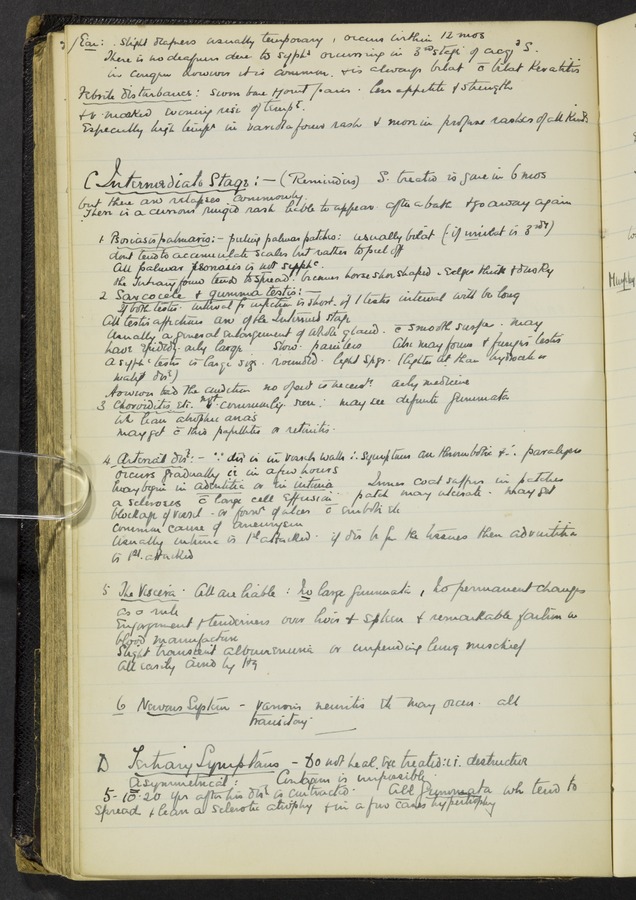 Ear: Slight deafness usually temporary, occurs within 12 mos
There is no deafness due to syph^s occurring in 3^rd stage of acq^d S.
in congen however it is common, & is always bilat c̄ bilat Keratitis
Febrile disturbance: some bone & joint pains. less appetite & strength
& v. marked evening rise of temp^e.
Especially high temp^e in varioloform rash & more in profuse rashes of all kinds
C Intermediate Stage:— (Reminders) S. treated is gone in 6 mos
but there are relapses commonly.
There is a curious ringed rash liable to appear after a bath & go away again
1 Psoriasis palmaris:— peeling palmar patches: usually bilat (if unilat is 3^ary)
dont tend to accumulate scales but rather to peel off
All palmar psoriasis is not syph^c.
the Tertiary form tends to spread. becomes horse shoe shaped. edges thick & dusky
2 Sarcocele & gumma testis:—
If both testes interval fr infection is short. if 1 testis interval will be long
All testis affections are of the Intermed stage
Usually a general enlargement of whole gland. c̄ smooth surface. may
have early large. Slow. painless Also may form & fungus testis
A syph^c testis is large size. rounded. light (lighter at than hydrocele or
malig^t dis^e)
However bad the condition no op^n is necess^y. only medicine
3 Choroiditis, etc. not commonly seen: may see definite gummata
wh leave atrophic areas
may get c̄ this papillitis or retinitis.
4. Arterial dis^e:— ∵ dis is in vessels walls ∴ symptoms are thrombotic &. paralyses
occurs gradually ie in a few hours
may begin in adventitia or in intima Inner coat suffers in patches
a sclerosis c̄ large cell effusion. patch may ulcerate. may get
blockage of vessel - or form^n of ulcer c̄ emboli etc
Common cause of aneurysm
Usually intima is 1^st attacked. if dis is fr the tissues then adventitia
is 1^st attacked
5 The Viscera. All are liable: No large gummata, no permanent changes
as a rule
Engorgement & tenderness over liver & spleen & remarkable failure in
blood manufacture
Slight transient albuminuria or impending lung mischief
all easily cured by Hg
6 Nervous System - various neuritis etc may occur. all
transitory.
D Tertiary Symptoms - Do not heal. tre treated: i. destructive
Asymmetrical: Contagion is impossible.
5-10-20 yrs after his dis^e is contracted. All Gummata wh tend to
spread & leave a sclerotic atrophy & in a few cases hypertrophy
Murphy